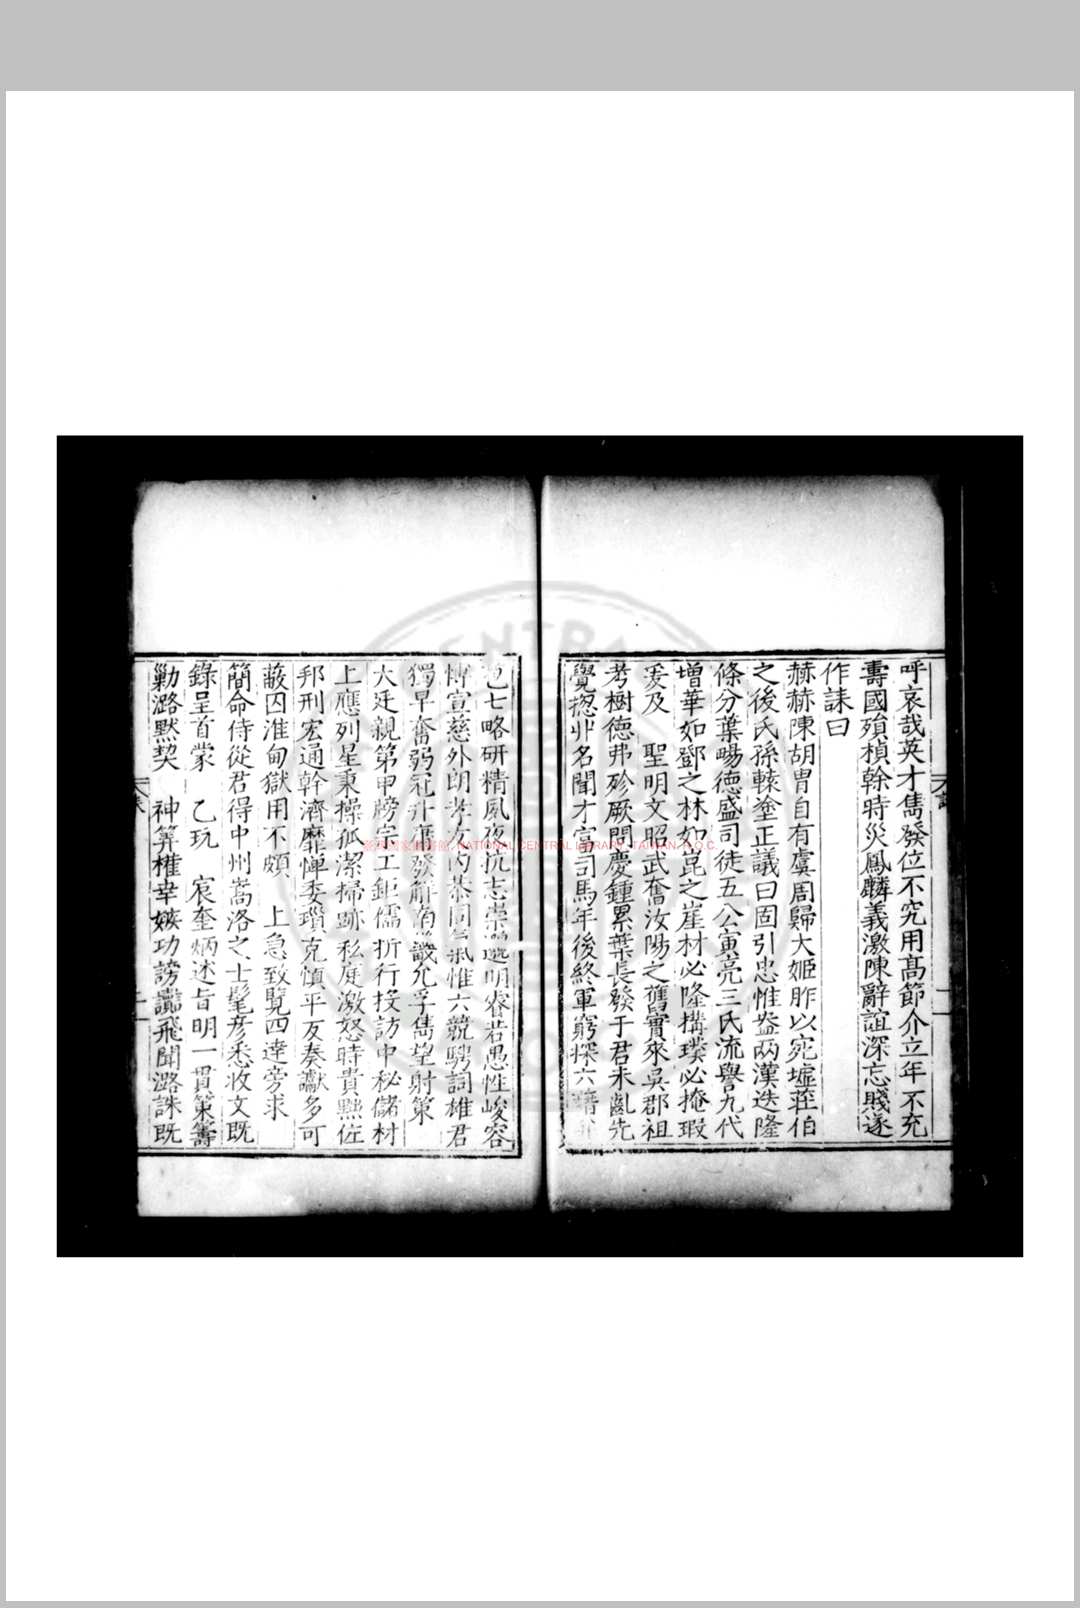 呼哀哉英才雋發位不究用髙節介立年不充
壽國殞楨榦時災鳳麟義激陳辭誼深忘賤遂
作誄曰
赫赫陳胡胄自有虞周歸大姬胙以宛墟莊伯
之後氏孫轅塗正議曰固引忠惟盎兩漢迭隆
條分葉暢德盛司徒五公寅亮三氏流譽九代
增華如鄧之林如崑之崖材必隆構璞必掩瑕
爰及 聖明文昭武奮汝陽之舊實來吳郡祖
考樹德弗殄厥問慶鍾累葉長發于君未齓先
覺揔丱名聞才富司馬年後終軍窮探六籍
七略研精夙夜抗志崇邈明睿若愚性峻容
博宣慈外朗孝友內恭同氣惟六競騁詞雄君
獨早奮弱冠升庸發觧南畿允孚雋望射策
大廷親第甲牓宗工鉅儒折行接訪中秘儲材
上應列星秉操孤潔掃跡私庭激怒時貴黜佐
邦刑宏通幹濟靡憚委瑣克慎平反奏讞多可
蔽囚淮甸獄用不頗 上急致覽四達旁求
簡命侍從君得中州嵩洛之士髦彥悉收文旣
錄呈首蒙 乙玩 宸奎炳述旨明一貫策籌
勦潞黙契 神筭權幸嫉功謗讟飛聞潞誅旣
新華國家圖書館, NATIONAL CENTRAL LIBRARY, TAIWAN, R.O.C.